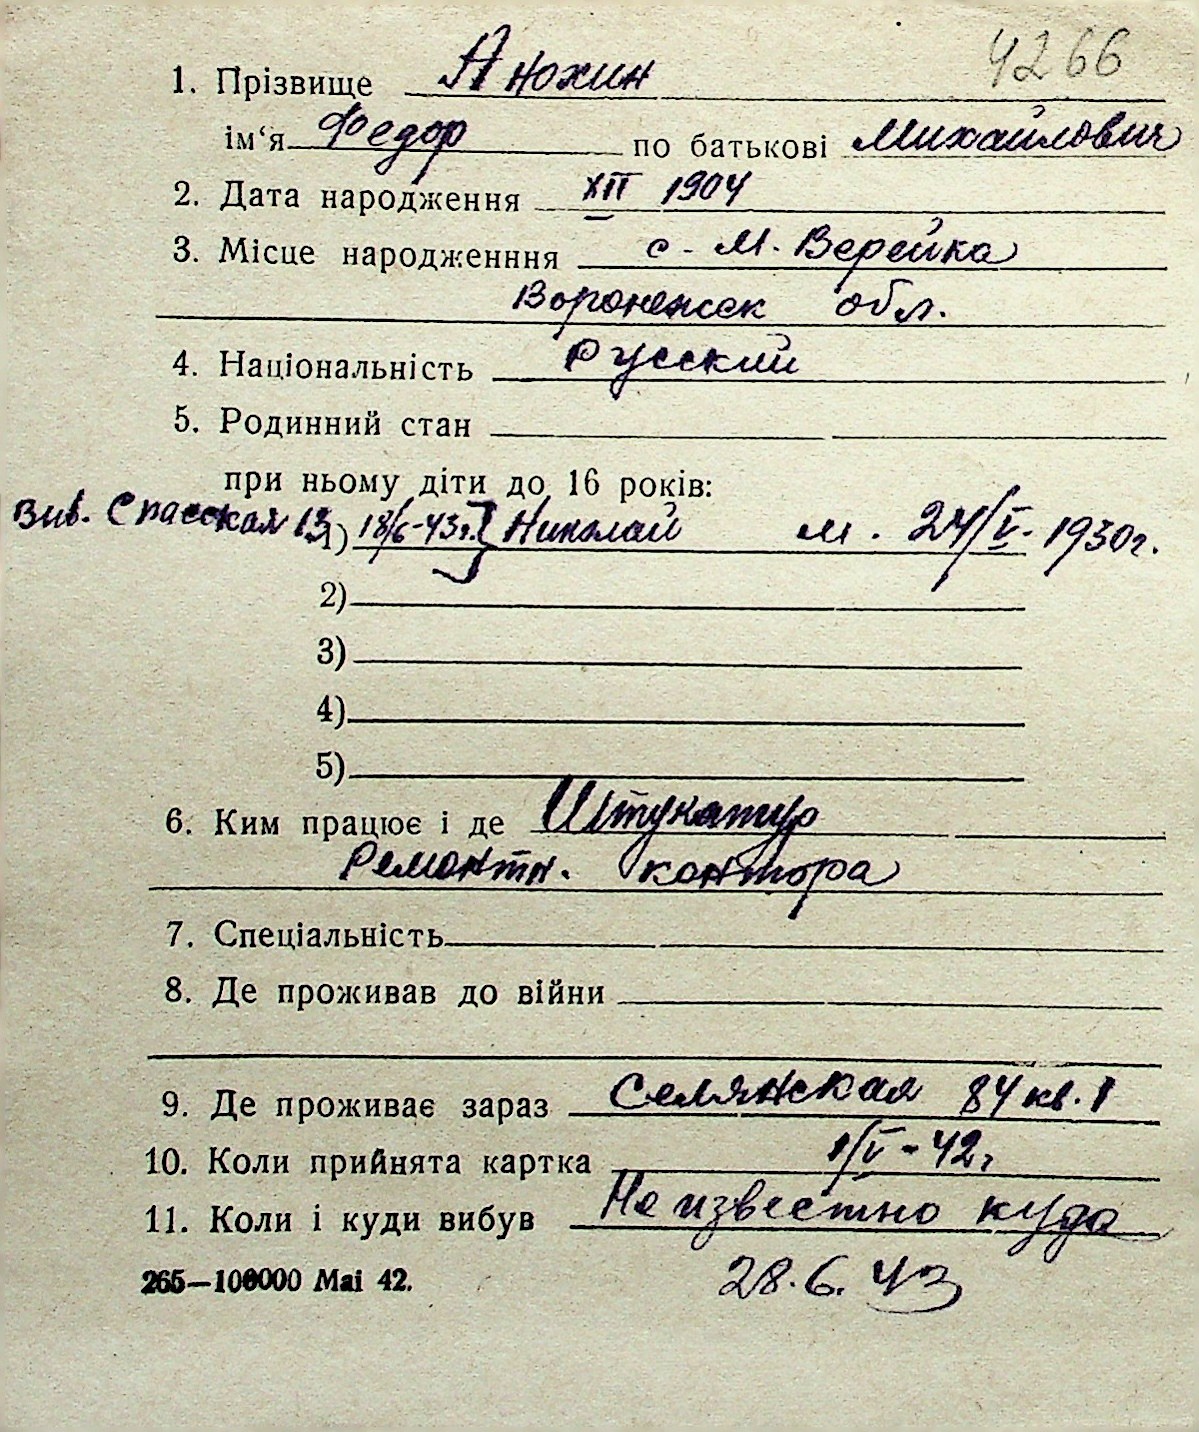 4266
1. Прізвище Анохин
ім‘я Федор по батькові Михайлович
2. Дата народження XII 1904
3. Місце народженння с. М. Верейка
Воронежск обл.
4. Національність Русский
5. Родинний стан
при ньому діти до 16 років:
Вив. Спасская 13 1) 18/6-43г. Николай м. 24/V-1930г.
2)
3)
4)
5)
6. Ким працює і де Штукатур
Ремонтн. контора
7. Спеціальність
8. Де проживав до війни
9. Де проживає зараз Селянская 84 кв. 1
10. Коли прийнята картка 1/V-42г
11. Коли і куди вибув Неизвестно куда
28.6.43
265—100000 Маі 42.